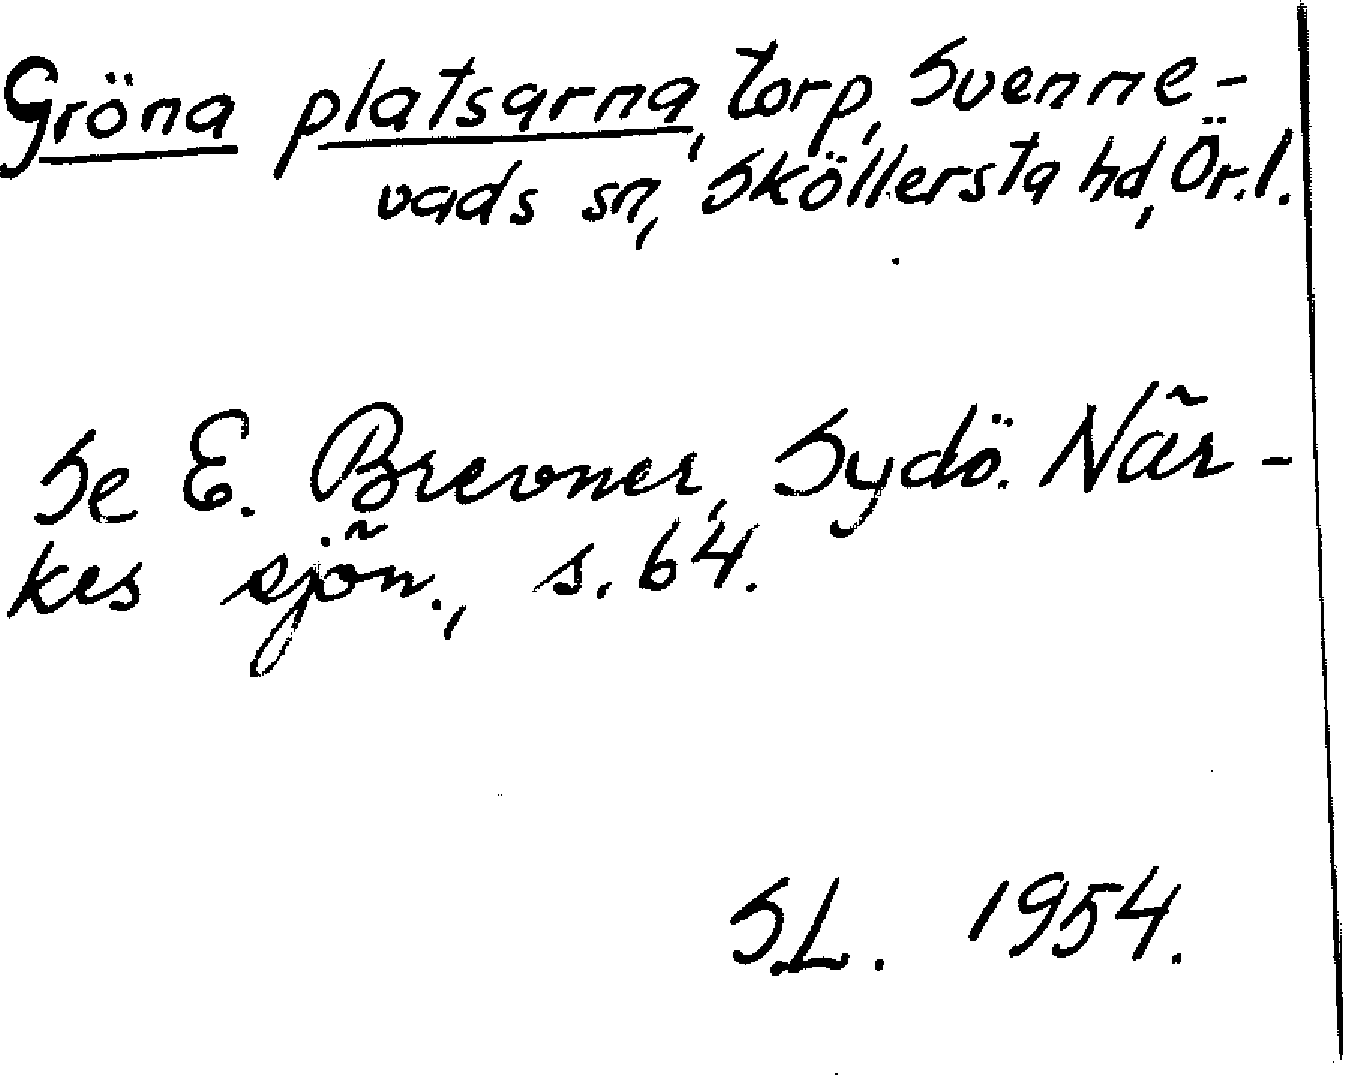 Gröna platsarna, torp, Svenne-
vads sn, Sköllersta hd, Ör.l.
Se E. Brevner, Sydö. När-
kes sjön., s. 64.
S.L. 1954.